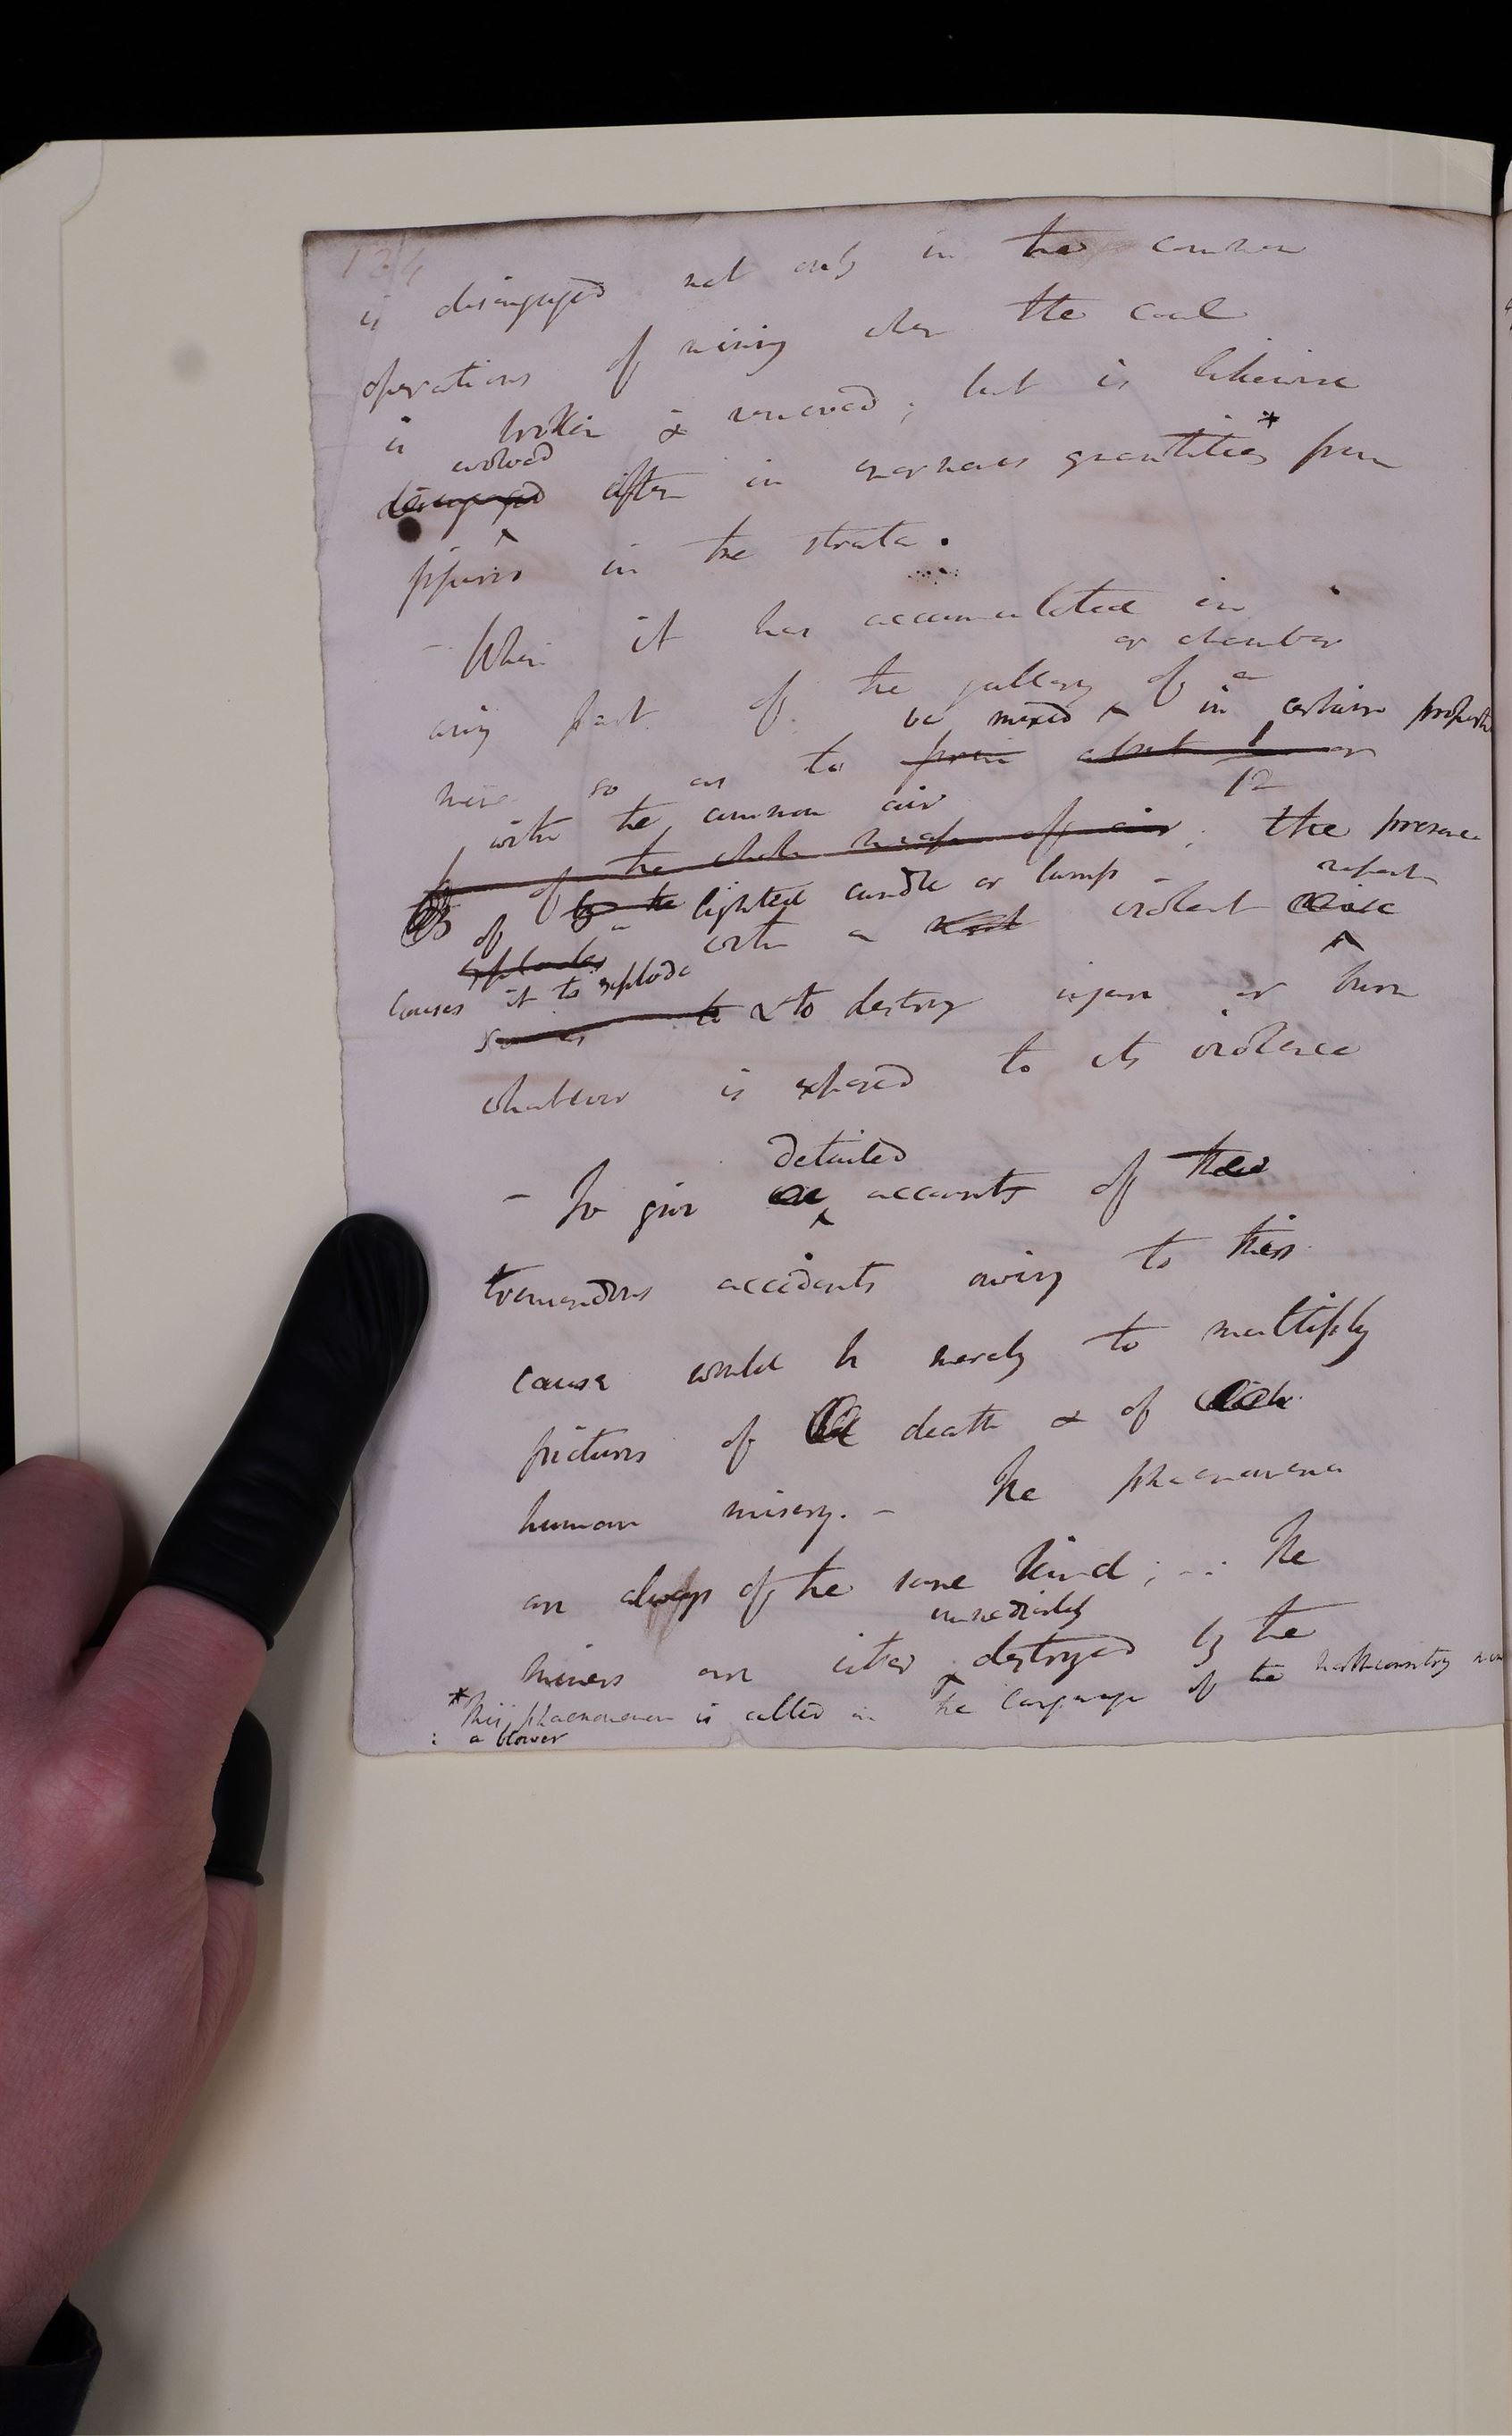 124
is disengaged not only in the common
operations of mining when the coal
is broken & removed; but is likewise
evolved
disengaged often in enormous quantities* from
fissures in the strata.
- When it has accumulated in
or chamber
any part of the gallery of a
be mixed in certain proportions
mine so as to form about 1/12 or
with the common air
of the whole mass of air; the presence
of by the a lighted candle or lamp - report
explodes with a violent noise
causes it to explode
& to destroy injure or burn
whatever is exposed to its violence
detailed
- To give accounts of these
tremendous accidents owing to this
cause would be merely to multiply
pictures of death & of
human misery. - The phaenomena
are always of the same kind; -: The
immediately
miners are either destroyed by the
* This phaenomenon is called in the language of the north country
a blower